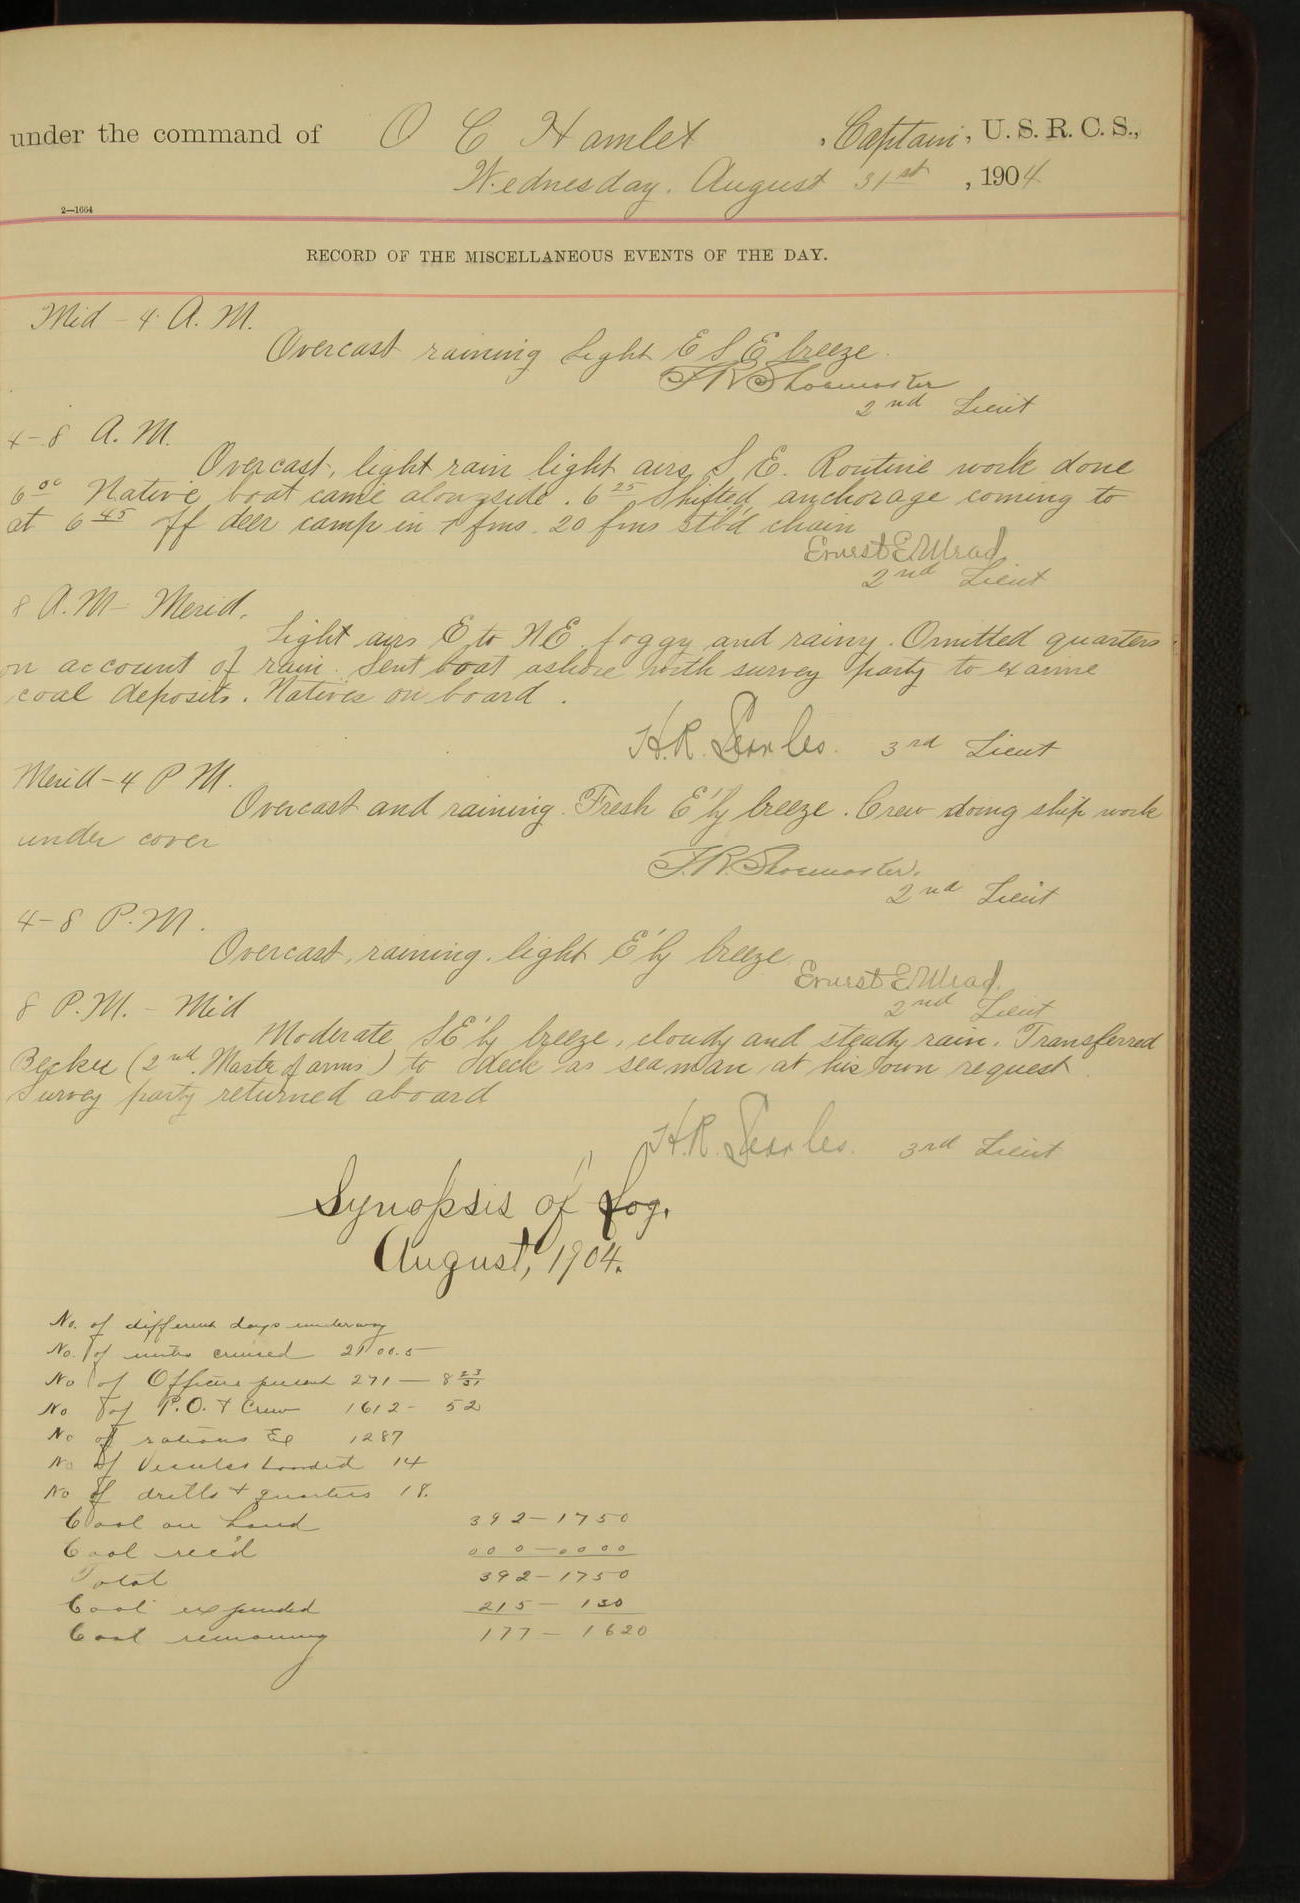 under the command of O C Hamlet, Captain, U. S. R. C. S.,
Wednesday, August 31st, 1904
2—1664
RECORD OF THE MISCELLANEOUS EVENTS OF THE DAY.
Mid - 4 A. M.
Overcast raining light E S E breeze.
F R Shoemaster
2nd Lieut
4 - 8 A. M.
Overcast, light rain light airs S E. Routine work done
6 00 Native boat came alongside. 6 25 Shifted anchorage coming to
at 6 45 off deer camp in fms. 20 fms stb'd chain
Ernest E Mead
2nd Lieut
8 A. M - Merid.
Light airs E to NE foggy and rainy. Omitted quarters
on account of rain. Sent boat ashore with survey party to examine
coal deposits. Natives on board.
H. R. Searles. 3rd Lieut
Merid - 4 P M.
Overcast and raining. Fresh E'ly breeze. Crew doing ship work
under cover
F. R. Shoemaster.
2nd Lieut
4 - 8 P. M.
Overcast, raining, light E'ly breeze
Ernest E Mead.
2nd Lieut
8 P. M. - Mid
Moderate SE'ly breeze, cloudy and steady rain. Transferred
Becker (2nd Master of arms) to deck as seaman at his own request.
Survey party returned aboard
H. R. Searles. 3rd Lieut
Synopsis of Log.
August, 1904.
No. of different days underway
No. of miles cruised 2100.5
No of Officers present 271 — 8 23/31
No of P. O. & Crew 1612 - 52
No of rations Ex 1287
No of Vessels boarded 14
No of drills & quarters 18.
Coal on hand 392 - 1750
Coal rec'd 000 - 0000
Total 392 - 1750
Coal expended 215 - 130
Coal remaining 177 - 1620